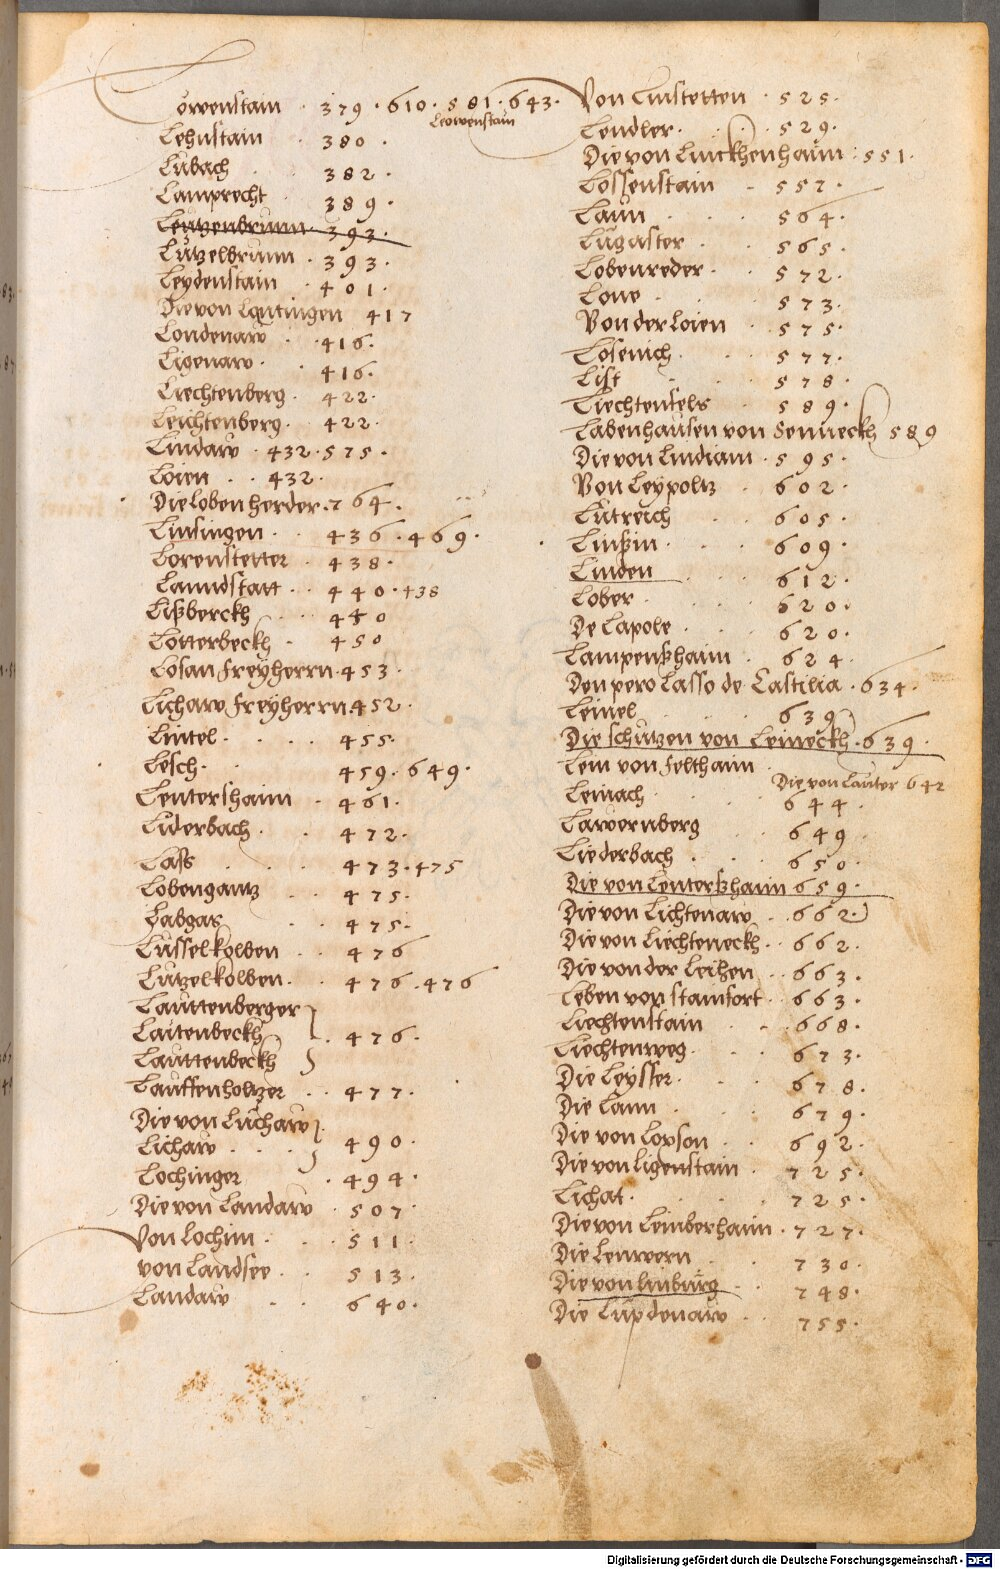 Löwenstain · 379 · 610 · 581 · 643 ·
Leowenstain
Lehnstain · 380 ·
Lubach · 382 ·
Lamprecht · 389 ·
Leutzenbrunn · 393 ·
Lützelbrunn · 393 ·
Leydenstain · 401 ·
Die von Lantingen 417
Londenaw · 416 ·
Ligenaw · 416 ·
Liechtenberg · 422 ·
Leichtenberg · 422 ·
Lindaw · 432 · 575 ·
Loien · · 432 ·
Die Lobenherder · 764 ·
Linsingen · 436 · 469 ·
Lorenstetter · 438 ·
Lanndstatt · · 440 · 438
Lißberckh · 440
Lotterbeckh · 450
Losan Freyherrn · 453 ·
Licharw Freyherrn 452 ·
Lintel · · · · 455 ·
Lesch · · 459 · 649 ·
Lentershaim · 461 ·
Liderbach · · 472 ·
Lass · · 473 · 475
Lobengantz · · 475 ·
Labgas · · 475 ·
Lüsselkolben · · 476
Lutzelkolben · · 476 · 476
Lauttenberger
Laitenbeckh · 476 ·
Lauttenbeckh
Lauffenholtzer · · 477 ·
Die von Lucharw
Licharw · · · 490 ·
Lochinger · 494 ·
Die von Landaw · 507 ·
Von Lochim · · · 511 ·
von Landsee · · 513 ·
Landaw · · 640 ·
Von Linstetten · 525 ·
Lendler · · · 529 ·
Die von Linckhenhaim · 551 ·
Lossenstain · 557 ·
Laun · · · 564 ·
Lugaster · · 565 ·
Lobenreder · · 572 ·
Lone · · · 573 ·
Von der Loien · 575 ·
Losenich · · · 577 ·
List · · · 578 ·
Liechtenfels · · 589 ·
Labenhausen von Senneckh 589
Die von Lindiam · 595 ·
Von Leypoltz · 602 ·
Lutreich · · 605 ·
Linßin · · · 609 ·
Linden · · 612 ·
Lober · · · 620 ·
De Lapole · · 620 ·
Lampenßhaim · 624 ·
Don pero Lasso de Castilia · 634 ·
Leinel · · · 639
Die schutzen von Leineckh · 639 ·
Lem von Felthaim
Die von Lauter 642
Leinach · · · 644 ·
Lawernberg · · 649 ·
Liederbach · · · 650 ·
Die von Lenterßhaim 659 ·
Die von Lichtenaw · 662 ·
Die von Liechteneckh · · 662 ·
Die von der Leihen · · 663 ·
Leben von Stainfort · · 663 ·
Liechtenstain · · 668 ·
Liechtenweg · · · 673 ·
Die Leysser · · · 678 ·
Die Lann · · · 679 ·
Die von Lopson · · 692 ·
Die von Ligenstain · 725 ·
Lichat · · · · 725 ·
Die von Lemberhaim · 727 ·
Die Lenwern · · 730 ·
Die von Linburg · · 748 ·
Die Lupdenaw · · 755 ·
Digitalisierung gefördert durch die Deutsche Forschungsgemeinschaft - DFG